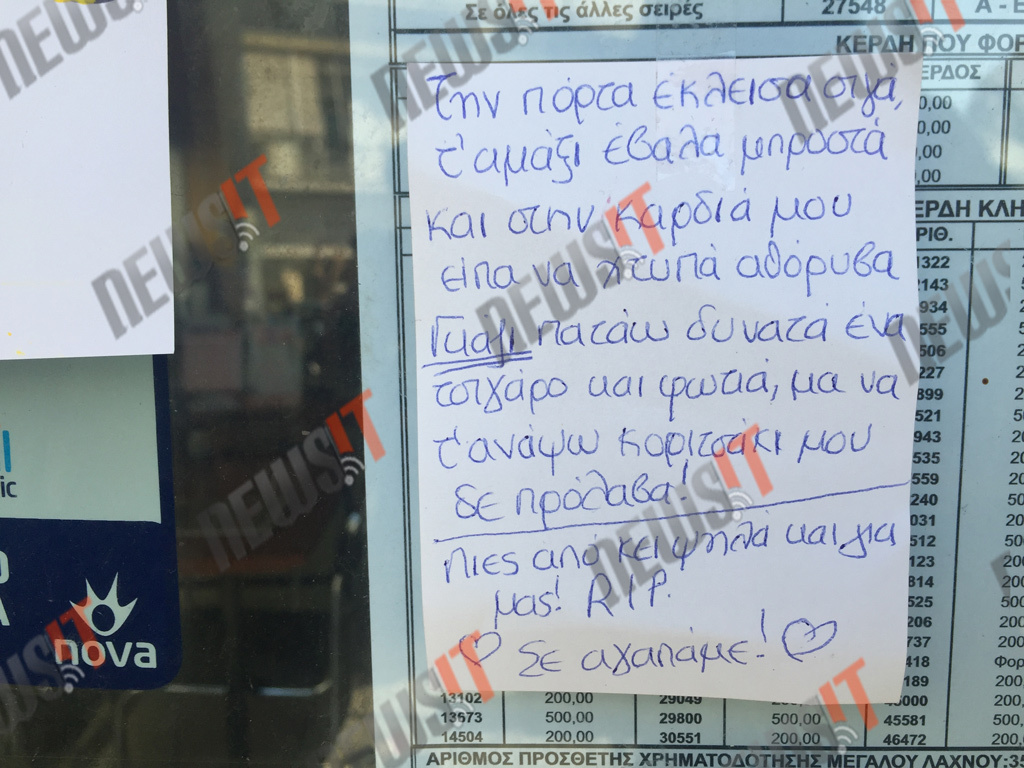 Σε όλες τις άλλες σειρές
27548
Α - Ε
ΚΕΡΔΗ ΠΟΥ ΦΟΡ
ΕΡΔΟΣ
0,00
0,00
,00
0,00
ΕΡΔΗ ΚΛΗ
ΡΙΘ.
Την πόρτα έκλεισα σιγά,
τ'αμάξι έβαλα μπροστά
και στην καρδιά μου
είπα να χτυπά αθόρυβα
Γκάζι πατάω δυνατά ένα
τσιγάρο και φωτιά, μα να
τ'ανάψω κοριτσάκι μου
δε πρόλαβα!
Πιες από κει ψηλά και για
μας! R.I.P.
Σε αγαπάμε!
1322
2143
934
555
506
227
899
521
943
535
559
240
031
512
123
814
525
206
737
418 Φορ
189
13102 200,00 29049 200,00 40000 200,
13673 500,00 29800 500,00 45581
14504 200,00 30551 200,00 46472 200,
ΑΡΙΘΜΟΣ ΠΡΟΣΘΕΤΗΣ ΧΡΗΜΑΤΟΔΟΤΗΣΗΣ ΜΕΓΑΛΟΥ ΛΑΧΝΟΥ:35
nova
NEWSIT
NEWSIT
NEWSIT
NEWSIT
NEWSIT
NEWSIT
NEWSIT
NEWSIT